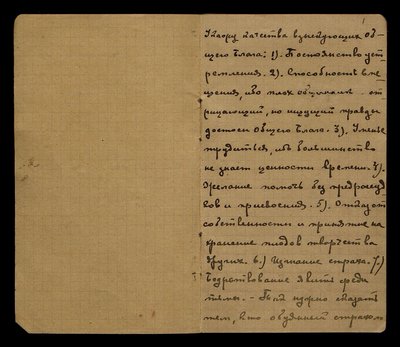 Укажу качества взыскующих об-
щего блага: 1). Постоянство уст-
ремления. 2). Способность вме-
щения, ибо плох общинник от-
рицающий, но ищущий правды
достоин Общего Блага. 3). Уменье
трудиться, ибо большинство
не знает ценности времени. 4).
Желание помочь без предрассуд-
ков и присвоения. 5). Отказ от
собственности и принятие на
хранение плодов творчества
других. 6.) Изгнание страха. 7.)
Бодрствование явить среди
тьмы. – Так нужно сказать
тем, кто овудный страхом